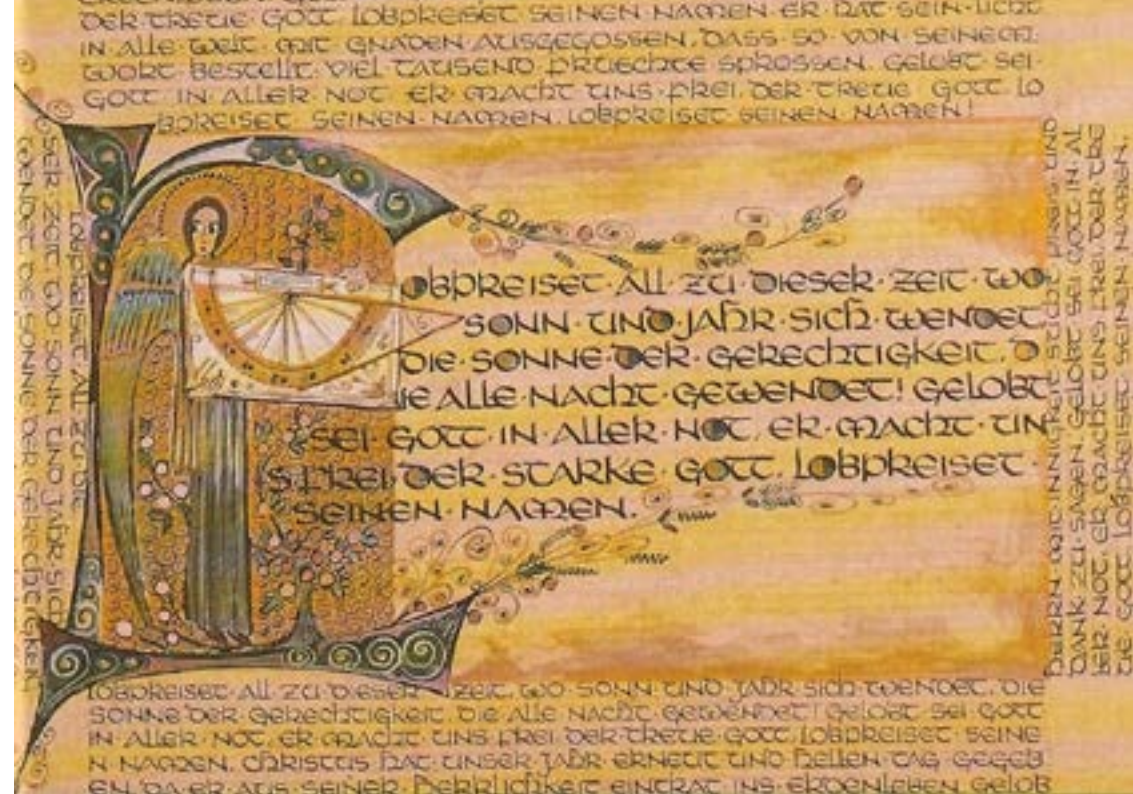 DER TREUE GOTT. LOBPREISET SEINEN NAMEN. ER HAT SEIN LICHT
IN ALLE WELT · MIT GNADEN AUSGEGOSSEN, DASS SO · VON SEINEM
WORT · BESTELLT · VIEL TAUSEND FRUECHTE SPROSSEN. GELOBT · SEI ·
GOTT · IN · ALLER · NOT · ER · MACHT · UNS · FREI · DER · TREUE GOTT LO
BPREISET · SEINEN · NAMEN. LOBPREISET · SEINEN · NAMEN!
LOBPREISET ALL ZU DIE
SER · ZEIT WO SONN UND JAHR · SICH
WENDET DIE SONNE DER GERECHTIGKEIT
LOBPREISET · ALL · ZU · DIESER · ZEIT · WO
SONN · UND · JAHR · SICH · WENDET
DIE · SONNE DER · GERECHTIGKEIT, D
IE ALLE NACHT · GEWENDET! GELOBT
SEI · GOTT · IN · ALLER · NOT, ER · MACHT · UN
S FREI · DER · STARKE · GOTT. LOBPREISET ·
SEINEN NAMEN.
HERRN MIT INNIGKEIT PREIS UND
DANK ZU · SAGEN. GELOBT SEI GOTT IN AL
LER NOT. ER MACHT UNS FREI. DER TRE
UE GOTT. LOBPREISET SEINEN NAMEN.
LOBPREISET · ALL · ZU DIESER · ZEIT, WO · SONN UND JAHR SICH WENDET, DIE
SONNE DER · GERECHTIGKEIT, DIE ALLE NACHT GEWENDET! GELOBT SEI · GOTT
IN · ALLER · NOT, ER MACHT · UNS · FREI DER · TREUE GOTT, LOBPREISET · SEINE
N NAMEN. CHRISTUS HAT UNSER JAHR ERNEUT UND HELLEN TAG GEGEB
EN, DA · ER · AUS · SEINER · HERRLICHKEIT EINTRAT INS · ERDENLEBEN GELOB